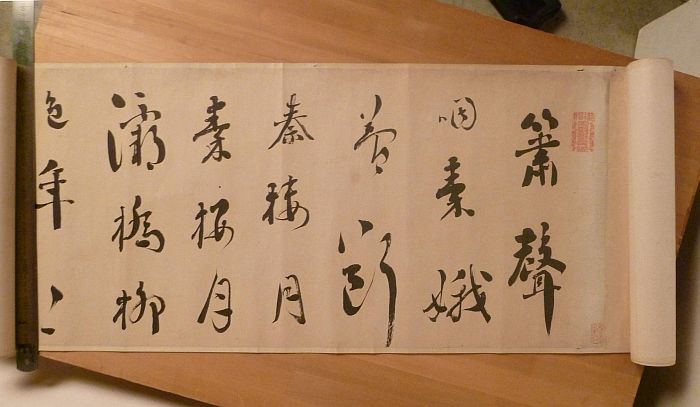 簫聲
咽秦娥
夢斷
秦樓月
秦樓月
灞橋柳
色年